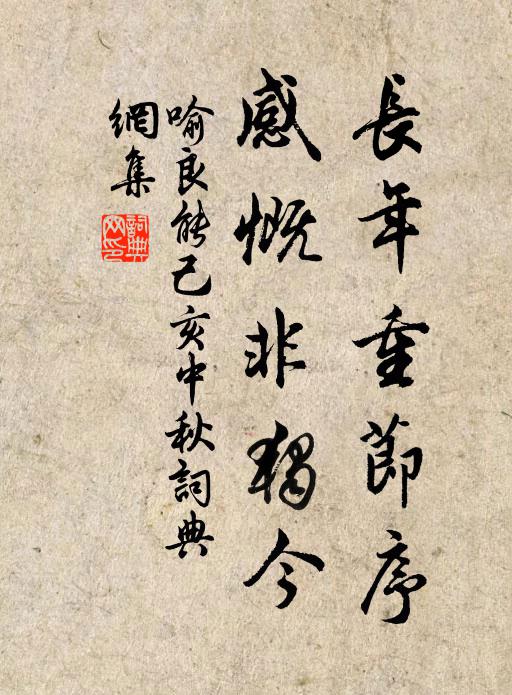 長年重節序
感慨非獨今
喻良能己亥中秋詞典
網集
詞典網印